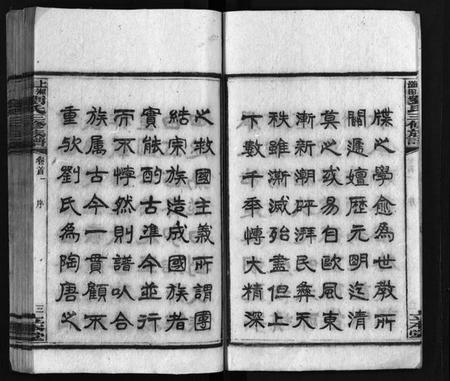 牒之學愈為世教所
關遞嬗歷元明迄清
莫之或易自歐風東
漸新潮砰湃民彝天
秩雖漸減殆盡但上
下數千年博大精深
之救國主義所謂團
結宗族造成國族者
實能酌古準今並行
而不悖然則譜以合
族属古今一貫顧不
重歟劉氏為陶唐之
卷首 序
三